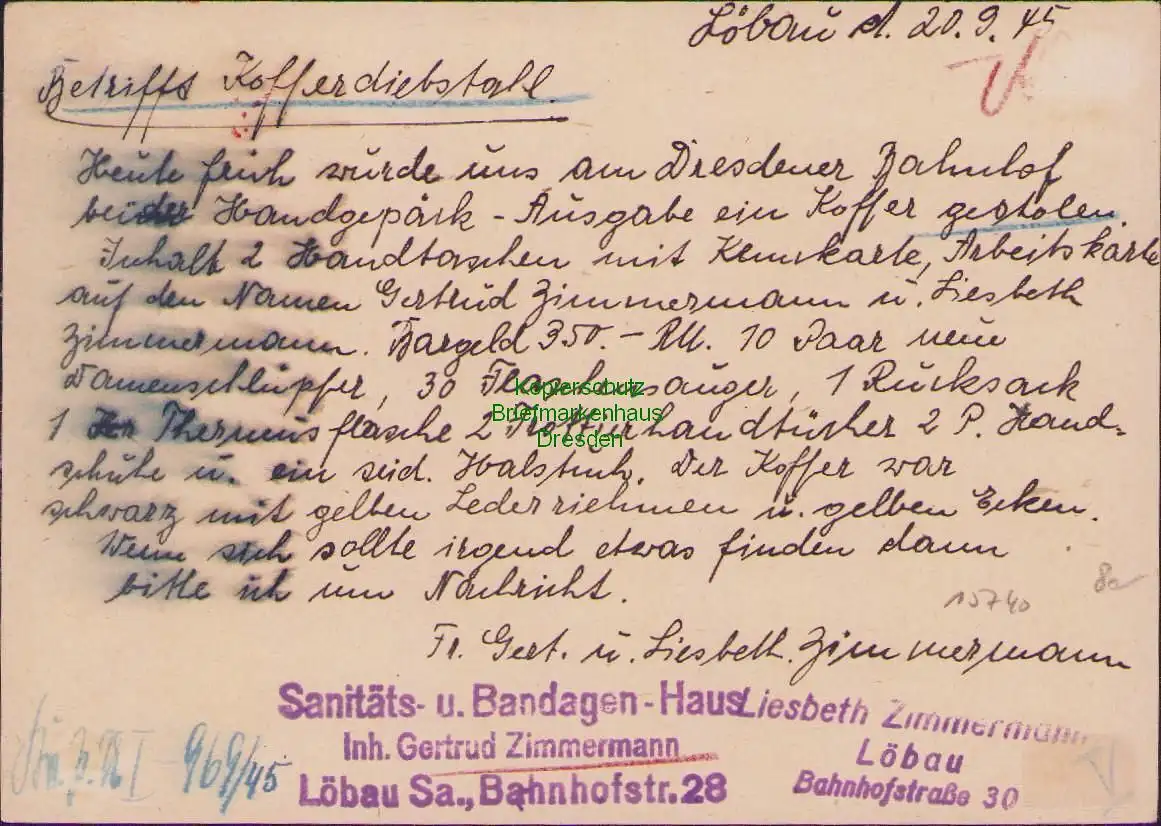 Löbau d. 20.9.45
Betriffts Kofferdiebstahl.
Heute früh wurde uns am Dresdener Bahnhof
bei der Handgepäck - Ausgabe ein Koffer gestolen.
Inhalt 2 Handtaschen mit Kennkarte, Arbeitskarte
auf den Namen Gertrud Zimmermann u. Liesbeth
Zimmermann. Bargeld 350.- RM. 10 Paar neue
Damenschlüpfer, 30 Flaschensauger, 1 Rucksack
1 Thermusflasche 2 Handtücher 2 P. Hand-
schuhe u. ein seid. Halstuch. Der Koffer war
schwarz mit gelben Lederriehmen u. gelben Ecken.
Wenn sich sollte irgend etwas finden dann
bitte ich um Nachricht.
15740
8a
Fr. Gert. u. Liesbeth. Zimmermann
Kopierschutz
Briefmarkenhaus
Dresden
Sanitäts- u. Bandagen-Haus
Inh. Gertrud Zimmermann
Löbau Sa., Bahnhofstr. 28
Liesbeth Zimmermann
Löbau
Bahnhofstraße 30
I 969/45